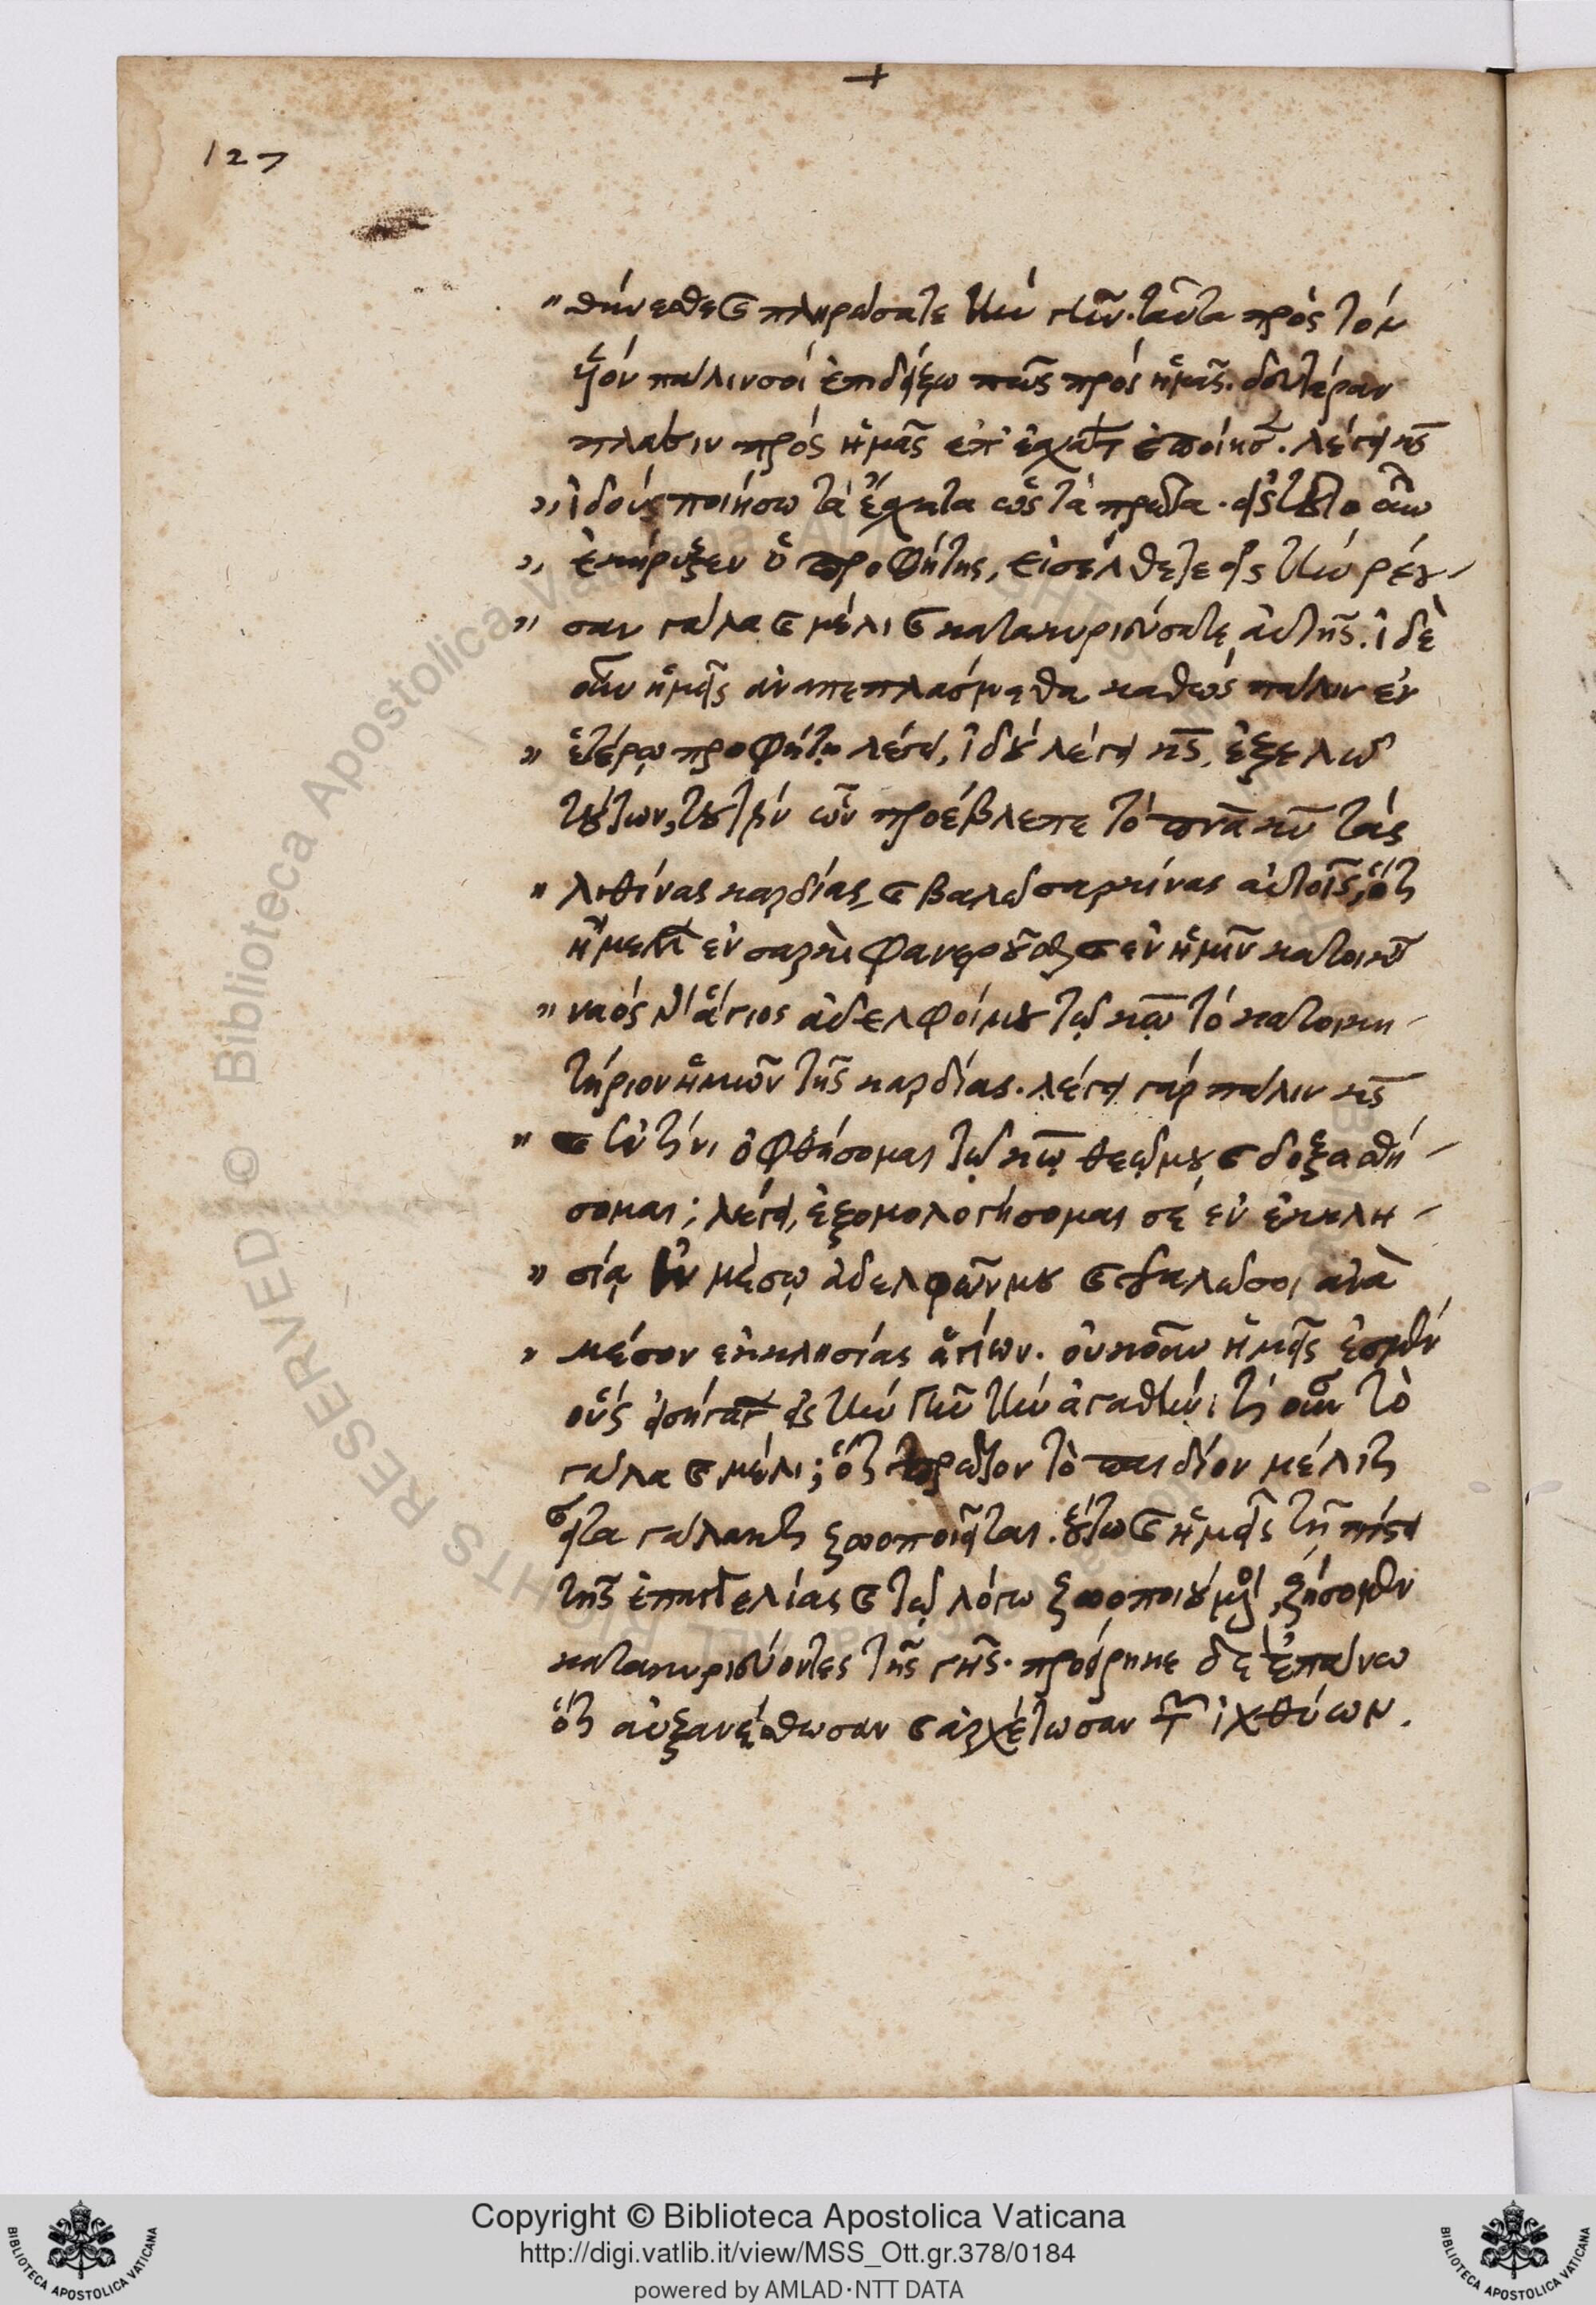 +
127
" θύνεσθε καὶ πληρώσατε τὴν γῆν. ταῦτα πρὸς τὸν
ὑιόν πάλιν σοι ἐπιδείξω πῶς πρὸς ἡμᾶς. δευτέραν
πλάσιν πρὸς ἡμᾶς ἐπ' ἐσχάτων ἐποίησεν. λέγει κς
" ἰδοὺ ποιήσω τὰ ἔσχατα ὡς τὰ πρῶτα. εἰς τοῦτο οὖν
" ἐκήρυξεν ὁ προφήτης, εἰσέλθετε εἰς τὴν ῥέου-
" σαν γάλα καὶ μέλι καὶ κατακυριεύσατε αὐτῆς. ἰδὲ
οὖν ἡμεῖς ἀναπεπλάσμεθα καθὼς πάλιν ἐν
" ἑτέρῳ προφήτῃ λέγει, ἰδοὺ λέγει κς, ἐξελῶ
τούτων, τουτέστιν ὧν προέβλεπε τὸ πνα κυ τὰς
" λιθίνας καρδίας, καὶ βαλῶ σαρκίνας αὐτοῖς, ὅτι
ἤμελλεν ἐν σαρκὶ φανεροῦσθαι καὶ ἐν ἡμῖν κατοικεῖν
" ναὸς γὰρ ἅγιος ἀδελφοί μου τῷ κω τὸ κατοικη-
τήριον ἡμῶν τῆς καρδίας. λέγει γὰρ πάλιν κς
" καὶ ἐν τίνι ὀφθήσομαι τῷ κω θεῷ μου καὶ δοξασθή-
σομαι; λέγει, ἐξομολογήσομαι σέ ἐν ἐκκλη-
" σίᾳ ἐν μέσῳ ἀδελφῶν μου καὶ ψαλῶ σοι ἀνὰ
" μέσον ἐκκλησίας ἁγίων. οὐκοῦν ἡμεῖς ἐσμὲν
οὓς εἰσήγαγεν εἰς τὴν γῆν τὴν ἀγαθήν; τί οὖν τὸ
γάλα καὶ μέλι; ὅτι πρῶτον τὸ παιδίον μέλιτι
εἶτα γάλακτι ζωοποιεῖται. οὕτω καὶ ἡμεῖς τῇ πίστει
τῆς ἐπαγγελίας καὶ τῷ λόγω ζωοποιούμενοι, ζήσομεν
κατακυριεύοντες τῆς γῆς. προείρηκε δὲ ἐπάνω
ὅτι αὐξανέσθωσαν καὶ ἀρχέτωσαν τῶν ἰχθύων.
Copyright © Biblioteca Apostolica Vaticana
http://digi.vatlib.it/view/MSS_Ott.gr.378/0184
powered by AMLAD·NTT DATA